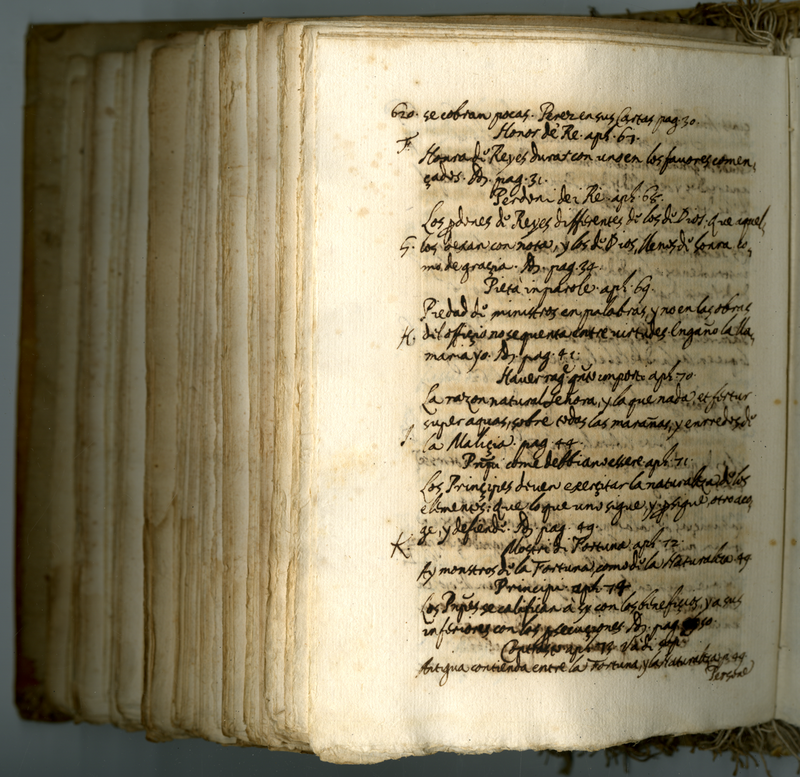 620. se cobran pocas. Perez en sus Cartas pag. 30.
Honor de Re. aph. 67.
F. Honra de Reyes dura con uno en los favores comen,
çados. pag. 31.
Perdoni de i Re. aph. 68.
Los pdones de Reyes differentes de los de Dios. Que aquel,
G. los dexan con nota, y los de Dios, llenos de honra co,
mo de graçia. pag. 34.
Pietà in parole. aph. 69.
Piedad de ministros en palabras, y no en las obras
H. del offiçio no se quenta entre virtudes. Engaño la lla,
maria yo. pag. 41.
Haver rag.e q.to importi aph. 70.
La razon natural Señora, y la que nada, et fertur
super aquas, sobre todas las marañas, y enrredos de
I. la Maliçia. pag. 44.
Pnpi come debbiano essere aph. 71.
Los Prinçipes deven exerçitar la naturaleza de los
elementos: Que lo que uno sigue, y psigue, otro aco,
ge, y defiende. pag. 49.
K. Mostri di Fortuna aph. 72.
Ay monstros de la Fortuna, como de la Naturaleza 49
Principi aph. 74
Los Pnpes se califican à sy con los benefiçios, y a sus
inferiores con las psecuçiones pag. 50.
Contrasto aph. 73.
Antigua contienda entre la Fortuna, y la Naturaleza p. 49
Persone